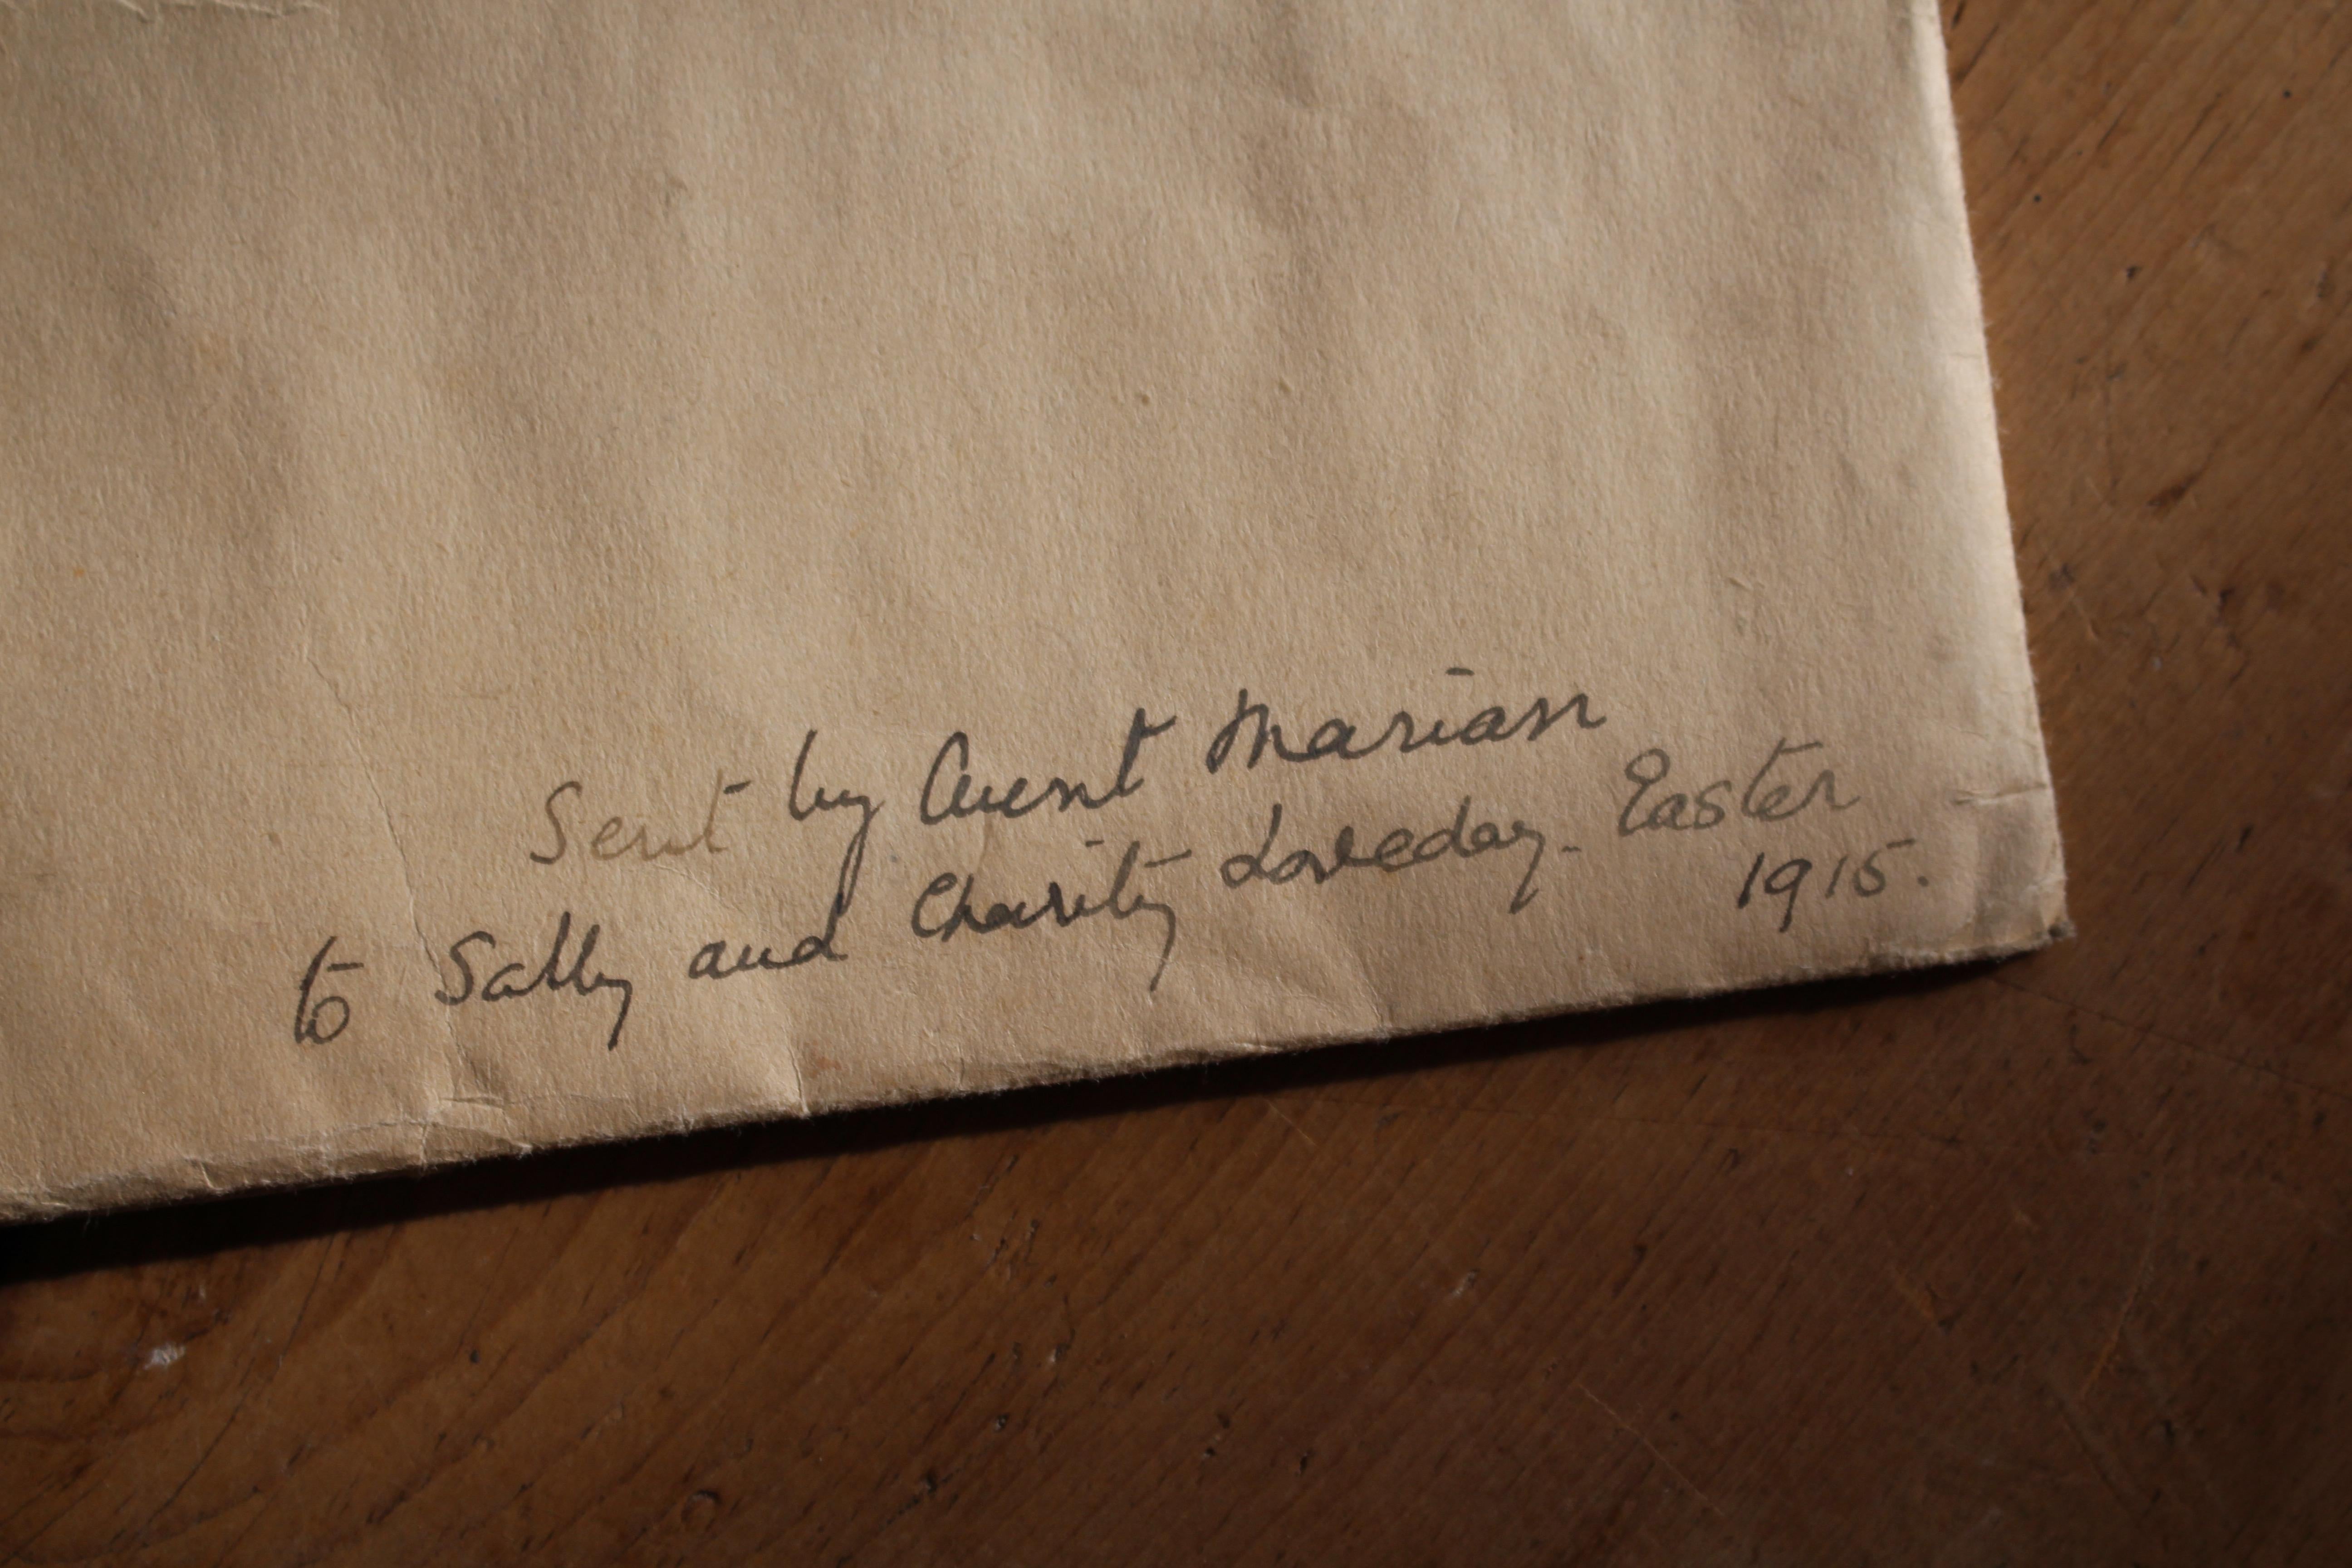 Sent by Aunt Marian
to Sally and Charity Loveday. Easter
1915.